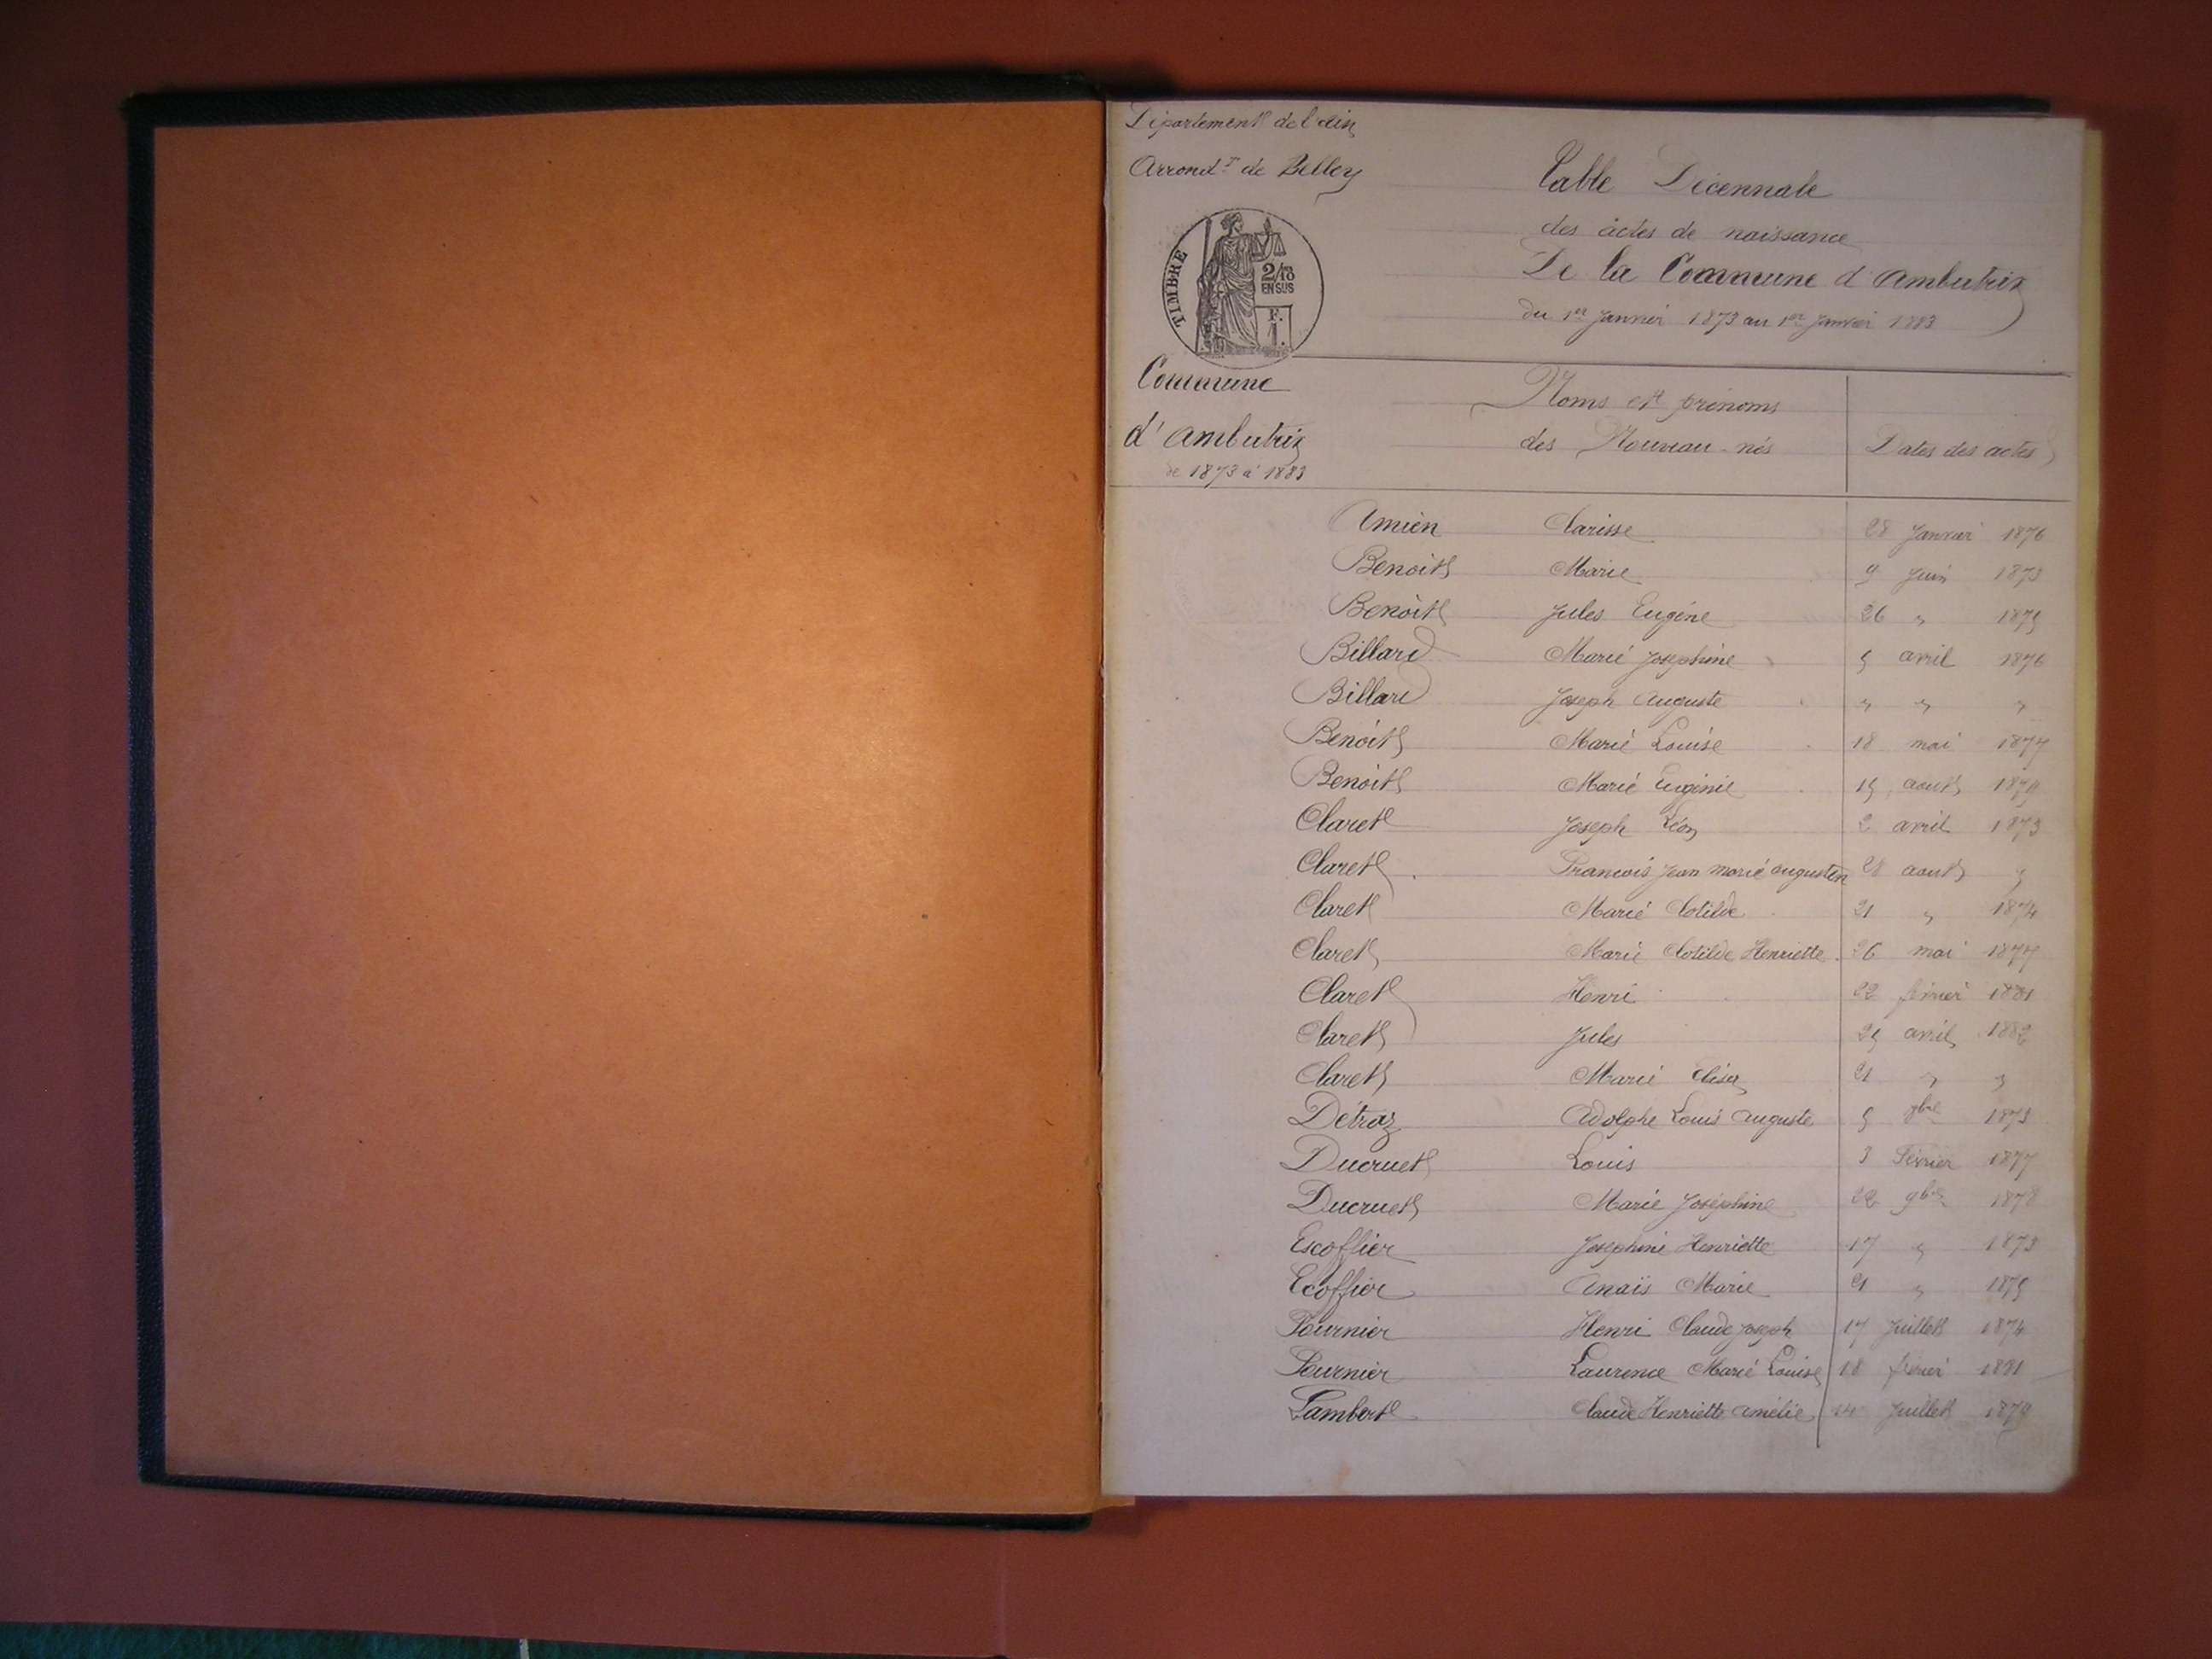 Département de l'ain
Arrond.t de Belley
Table Décennale
des actes de naissance
De la Commune d'Ambutrix
du 1er Janvier 1873 au 1er Janvier 1883
TIMBRE
2/10
EN SUS
F.
1.
Commune
d'Ambutrix
de 1873 à 1883
Noms et prénoms
des Nouveau-nés
Dates des actes
Amien Clarisse 28 Janvier 1876
Benoit Marie 9 Juin 1873
Benoit Jules Eugéne 26 " 1875
Billard Marie Joséphine 5 avril 1876
Billard Joseph Auguste " " "
Benoit Marie Louise 18 mai 1877
Benoit Marie Eugénie 15 aout 1879
Claret Joseph Léon 2 avril 1873
Claret Francois Jean marie augustin 28 aout "
Claret Marie Clotilde 21 " 1874
Claret Marie Clotilde Henriette 26 mai 1877
Claret Henri 22 février 1881
Claret Jules 25 avril 1882
Claret Marie Elisa 21 " "
Détraz Adolphe Louis Auguste 5 1873
Ducruet Louis 3 Février 1877
Ducruet Marie Joséphine 22 9bre 1878
Escoffier Joséphine Henriette 17 " 1873
Ecoffier Anaïs Marie 21 " 1875
Fournier Henri Claude Joseph 17 Juillet 1874
Fournier Laurence Marie Louise 18 février 1881
Lambert Claude Henriette Amélie 14 Juillet 1879